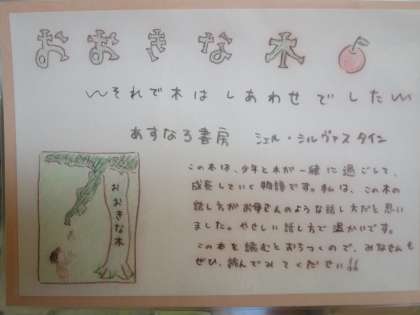 おおきな木
〜それで木はしあわせでした〜
あすなろ書房 シェル・シルヴァスタイン
おおきな木
この本は、少年と木が一緒に過ごして、
成長していく物語です。私は、この木の
話し方がお母さんのような話し方だと思い
ました。やさしい話し方で温かいです。
この本を読むとおちつくので、みなさんも
ぜひ、読んでみてください!!